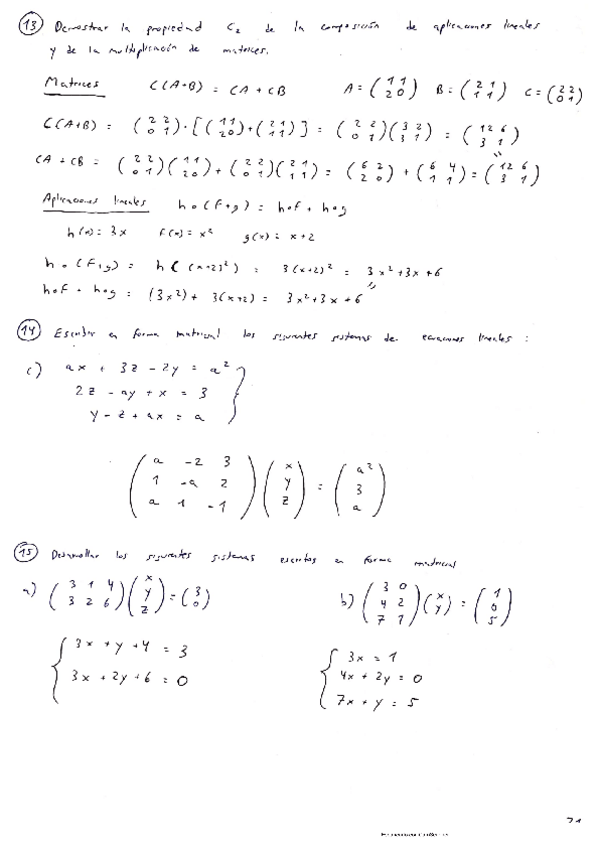 13 Demostrar la propiedad C₂ de la composición de aplicaciones lineales
y de la multiplicación de matrices.
Matrices C(A+B) = CA + CB A = (1 1 / 2 0) B = (2 1 / 1 1) C = (2 2 / 0 1)
C(A+B) = (2 2 / 0 1) · [(1 1 / 2 0) + (2 1 / 1 1)] = (2 2 / 0 1)(3 2 / 3 1) = (12 6 / 3 1)
CA + CB = (2 2 / 0 1)(1 1 / 2 0) + (2 2 / 0 1)(2 1 / 1 1) = (6 2 / 2 0) + (6 4 / 1 1) = (12 6 / 3 1)
Aplicaciones lineales h∘(f+g) = h∘f + h∘g
h(x) = 3x f(x) = x² g(x) = x+2
h∘(f+g) = h((x+2)²) = 3(x+2)² = 3x²+3x+6
h∘f + h∘g = (3x²) + 3(x+2) = 3x²+3x+6
14 Escribir en forma matricial los siguientes sistemas de ecuaciones lineales :
c) ax + 3z - 2y = a²
2z - ay + x = 3
y - z + ax = a
(a -2 3 / 1 -a 2 / a 1 -1)(x / y / z) = (a² / 3 / a)
15 Desarrollar los siguientes sistemas escritos en forma matricial
a) (3 1 4 / 3 2 6)(x / y / z) = (3 / 0) b) (3 0 / 4 2 / 7 1)(x / y) = (1 / 0 / 5)
3x + y + 4 = 3
3x + 2y + 6 = 0
3x = 1
4x + 2y = 0
7x + y = 5